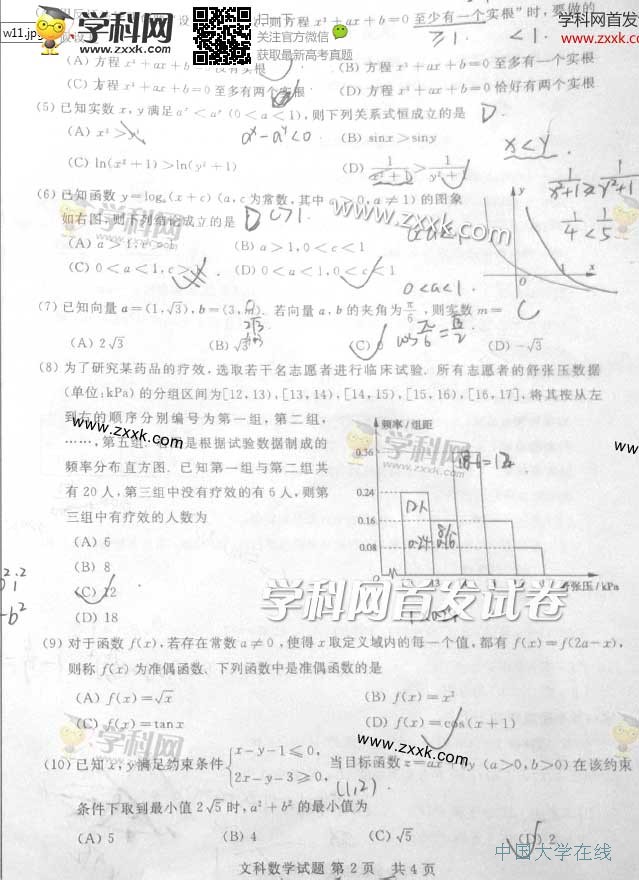 w11.jpg
学科网
www.zxxk.com
扫一下
关注官方微信
获取最新高考真题
学科网
www.zxxk.com
则方程 x³+ax+b=0 至少有一个实根”时,要做的
≥1. <1.
(A) 方程 x³+ax+b=0 没有实根 (B) 方程 x³+ax+b=0 至多有一个实根
(C) 方程 x³+ax+b=0 至多有两个实根 (D) 方程 x³+ax+b=0 恰好有两个实根
(5) 已知实数 x,y 满足 aˣ<aʸ (0<a<1),则下列关系式恒成立的是 D
(A) x³>y³ aˣ-aʸ<0 (B) sinx>siny
x<y
(C) ln(x²+1)>ln(y²+1) (D) 1/(x²+1)>1/(y²+1)
1/(x²+1)≥1/(y²+1)
1/4<1/5
(6) 已知函数 y=logₐ(x+c) (a,c 为常数,其中 a>0,a≠1) 的图象
如右图,则下列结论成立的是 D c>1.
学科网
www.zxxk.com
(A) a>1,c>1 (B) a>1,0<c<1
(C) 0<a<1,c>1 (D) 0<a<1,0<c<1
0<a<1.
y
O
1
x
(7) 已知向量 a=(1,√3),b=(3,m). 若向量 a,b 的夹角为 π/6 ,则实数 m= C
(A) 2√3 (B) √3 (C) 0 (D) -√3
cos π/6=√3/2
(8) 为了研究某药品的疗效,选取若干名志愿者进行临床试验. 所有志愿者的舒张压数据
(单位:kPa) 的分组区间为[12,13),[13,14),[14,15),[15,16),[16,17], 将其按从左
到右的顺序分别编号为第一组,第二组,
www.zxxk.com
……,第五组. 右图是根据试验数据制成的
频率分布直方图. 已知第一组与第二组共
有 20 人,第三组中没有疗效的有 6 人,则第
三组中有疗效的人数为
(A) 6
(B) 8
(C) 12
(D) 18
频率/组距
0.36
0.24
0.16
0.08
0
18-6=12
12人
0.24
舒张压/kPa
学科网
zxxk.com
www.
学科网首发试卷
-b²
(9) 对于函数 f(x),若存在常数 a≠0 ,使得 x 取定义域内的每一个值,都有 f(x)=f(2a-x),
则称 f(x) 为准偶函数、下列函数中是准偶函数的是
(A) f(x)=√x (B) f(x)=x²
(C) f(x)=tanx (D) f(x)=cos(x+1)
学科网
www.zxxk.com
(10) 已知 x,y 满足约束条件 {x-y-1≤0, 2x-y-3≥0, 当目标函数 z=ax+by (a>0,b>0) 在该约束
(1,2)
条件下取到最小值 2√5 时,a²+b² 的最小值为
www.zxxk.com
(A) 5 (B) 4 (C) √5 (D) 2
文科数学试题 第 2 页 共 4 页
中国大学在线